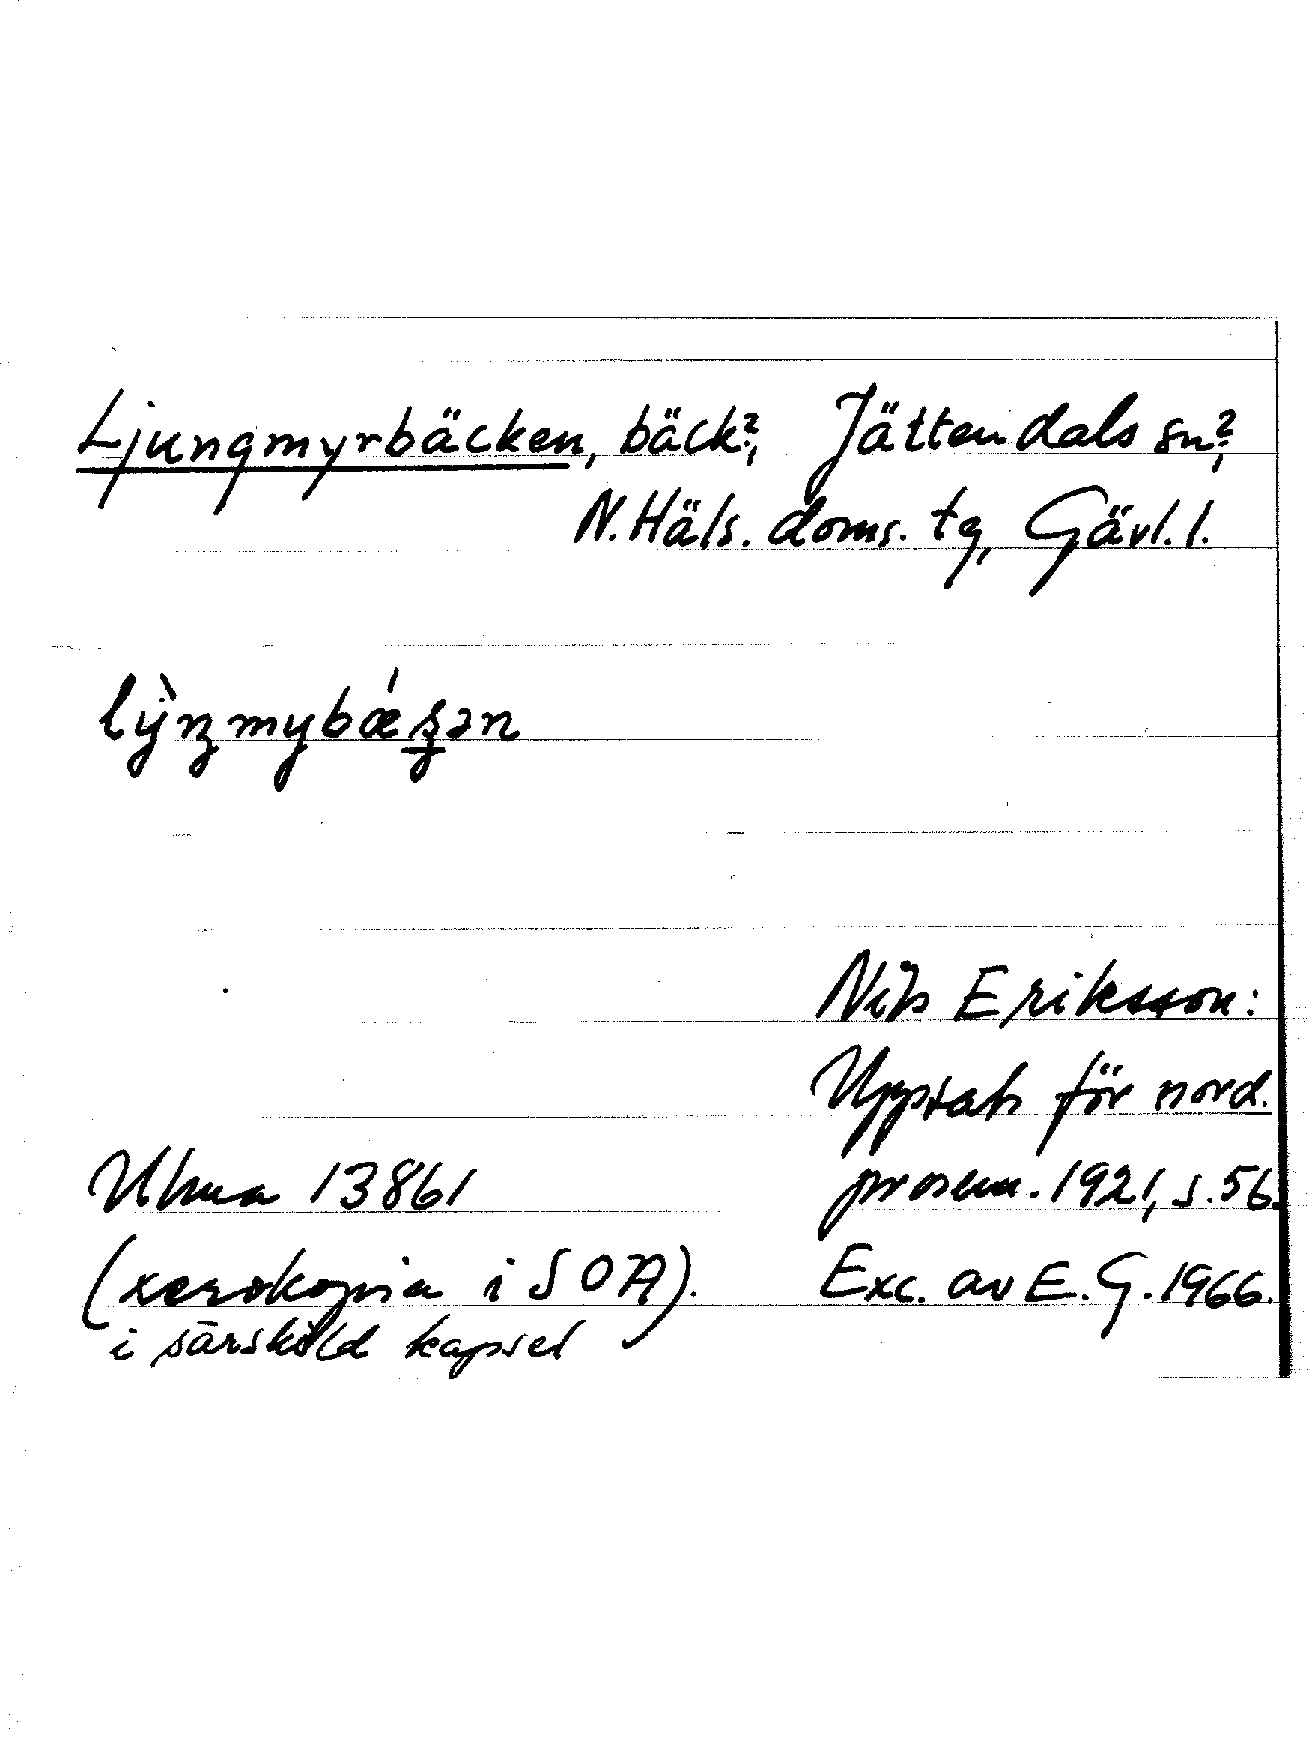 Ljungmyrbäcken, bäck?, Jättendals sn?,
N. Häls. doms. tg, Gävl. l.
Nils Eriksson:
Uppsats för nord.
Ulma 13861 prosem. 1921, s. 56.
(xerokopia i SOA). Exc. av E. G. 1966.
i särskild kapsel